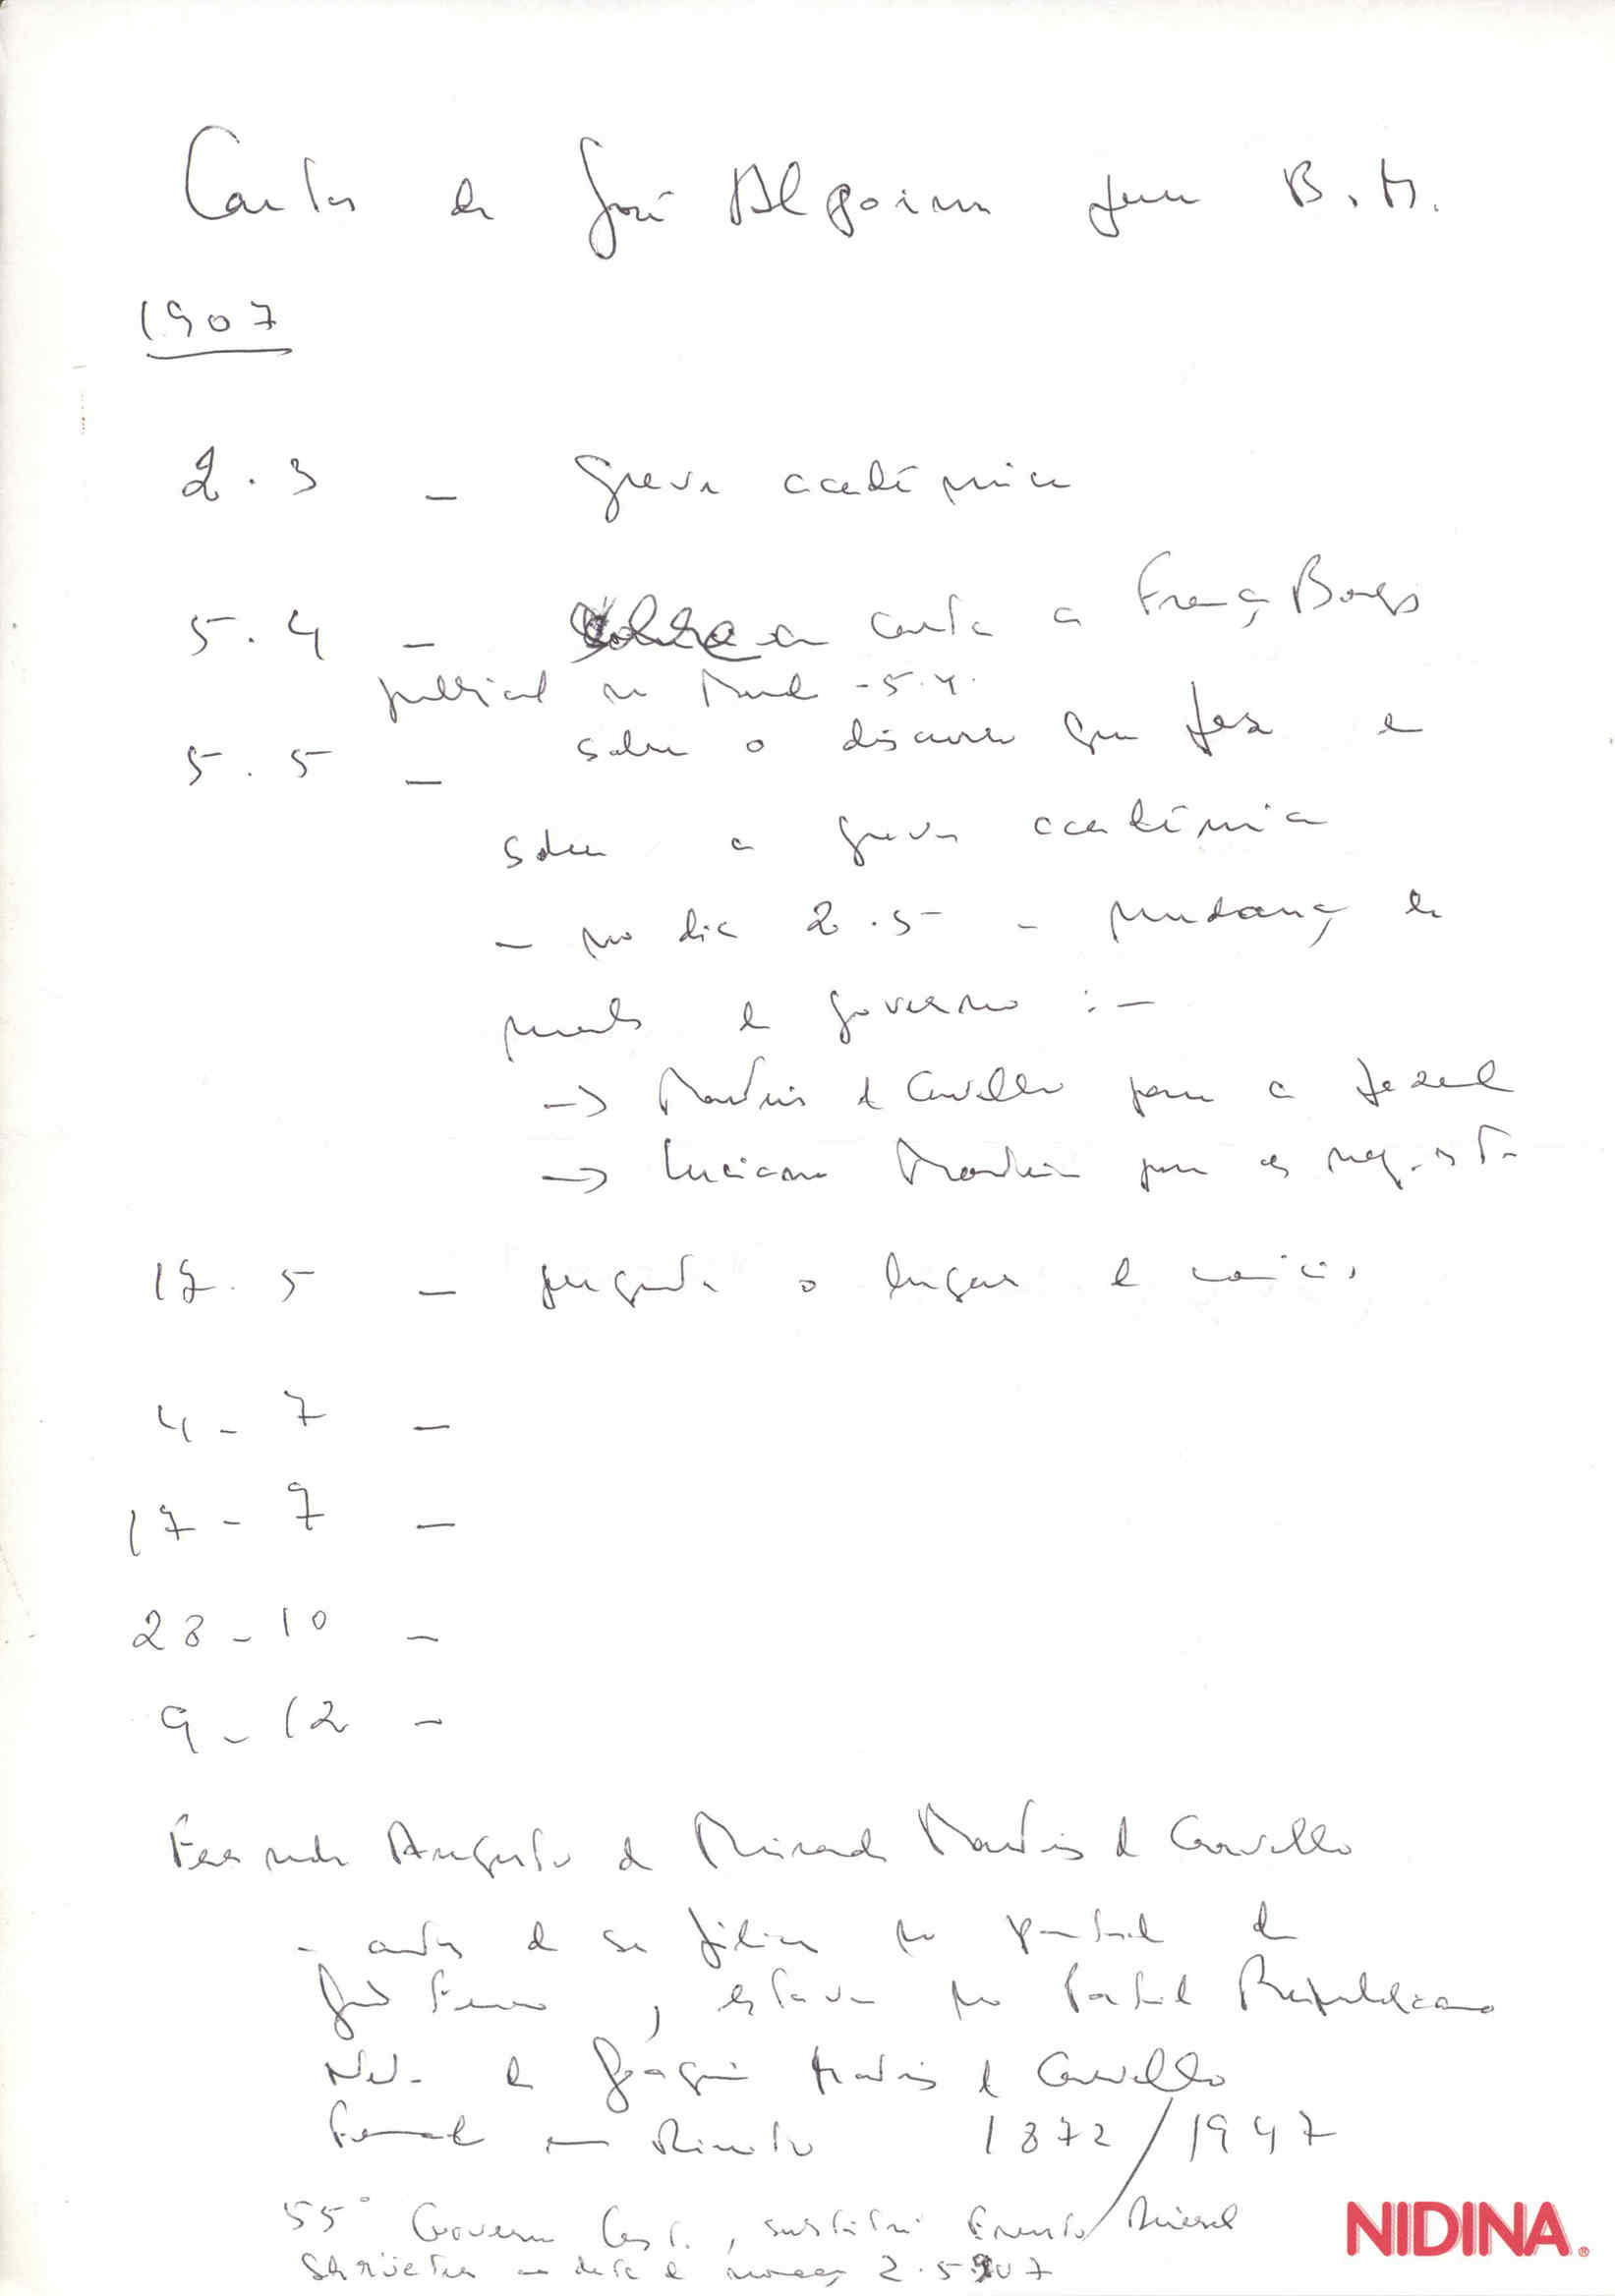 Cartas de José Alpoim para B. M.
1907
2.3 - Greve académica
5.4 - carta a França Borges
publicad no Mundo - 5.4.
5.5 - sobre o discurso que fez
sobre a greve académica
- no dia 2.5 - mudança de
de governo :-
-> Martins de Carvalho para a fazenda
-> Luciano Monteiro para os
17.5 - pergunta o lugar
4 - 7 -
17 - 7 -
28 - 10 -
9 - 12 -
Fernando Augusto de Miranda Martins de Carvalho
- antes de se filiar no partido de
estava no Partido Republicano
Neto de Joaquim Martins de Carvalho
Formado em Direito 1872/1947
55º Governo Const., substitui Ernesto Driesel
Schröeter data de 2.5.907
NIDINA®